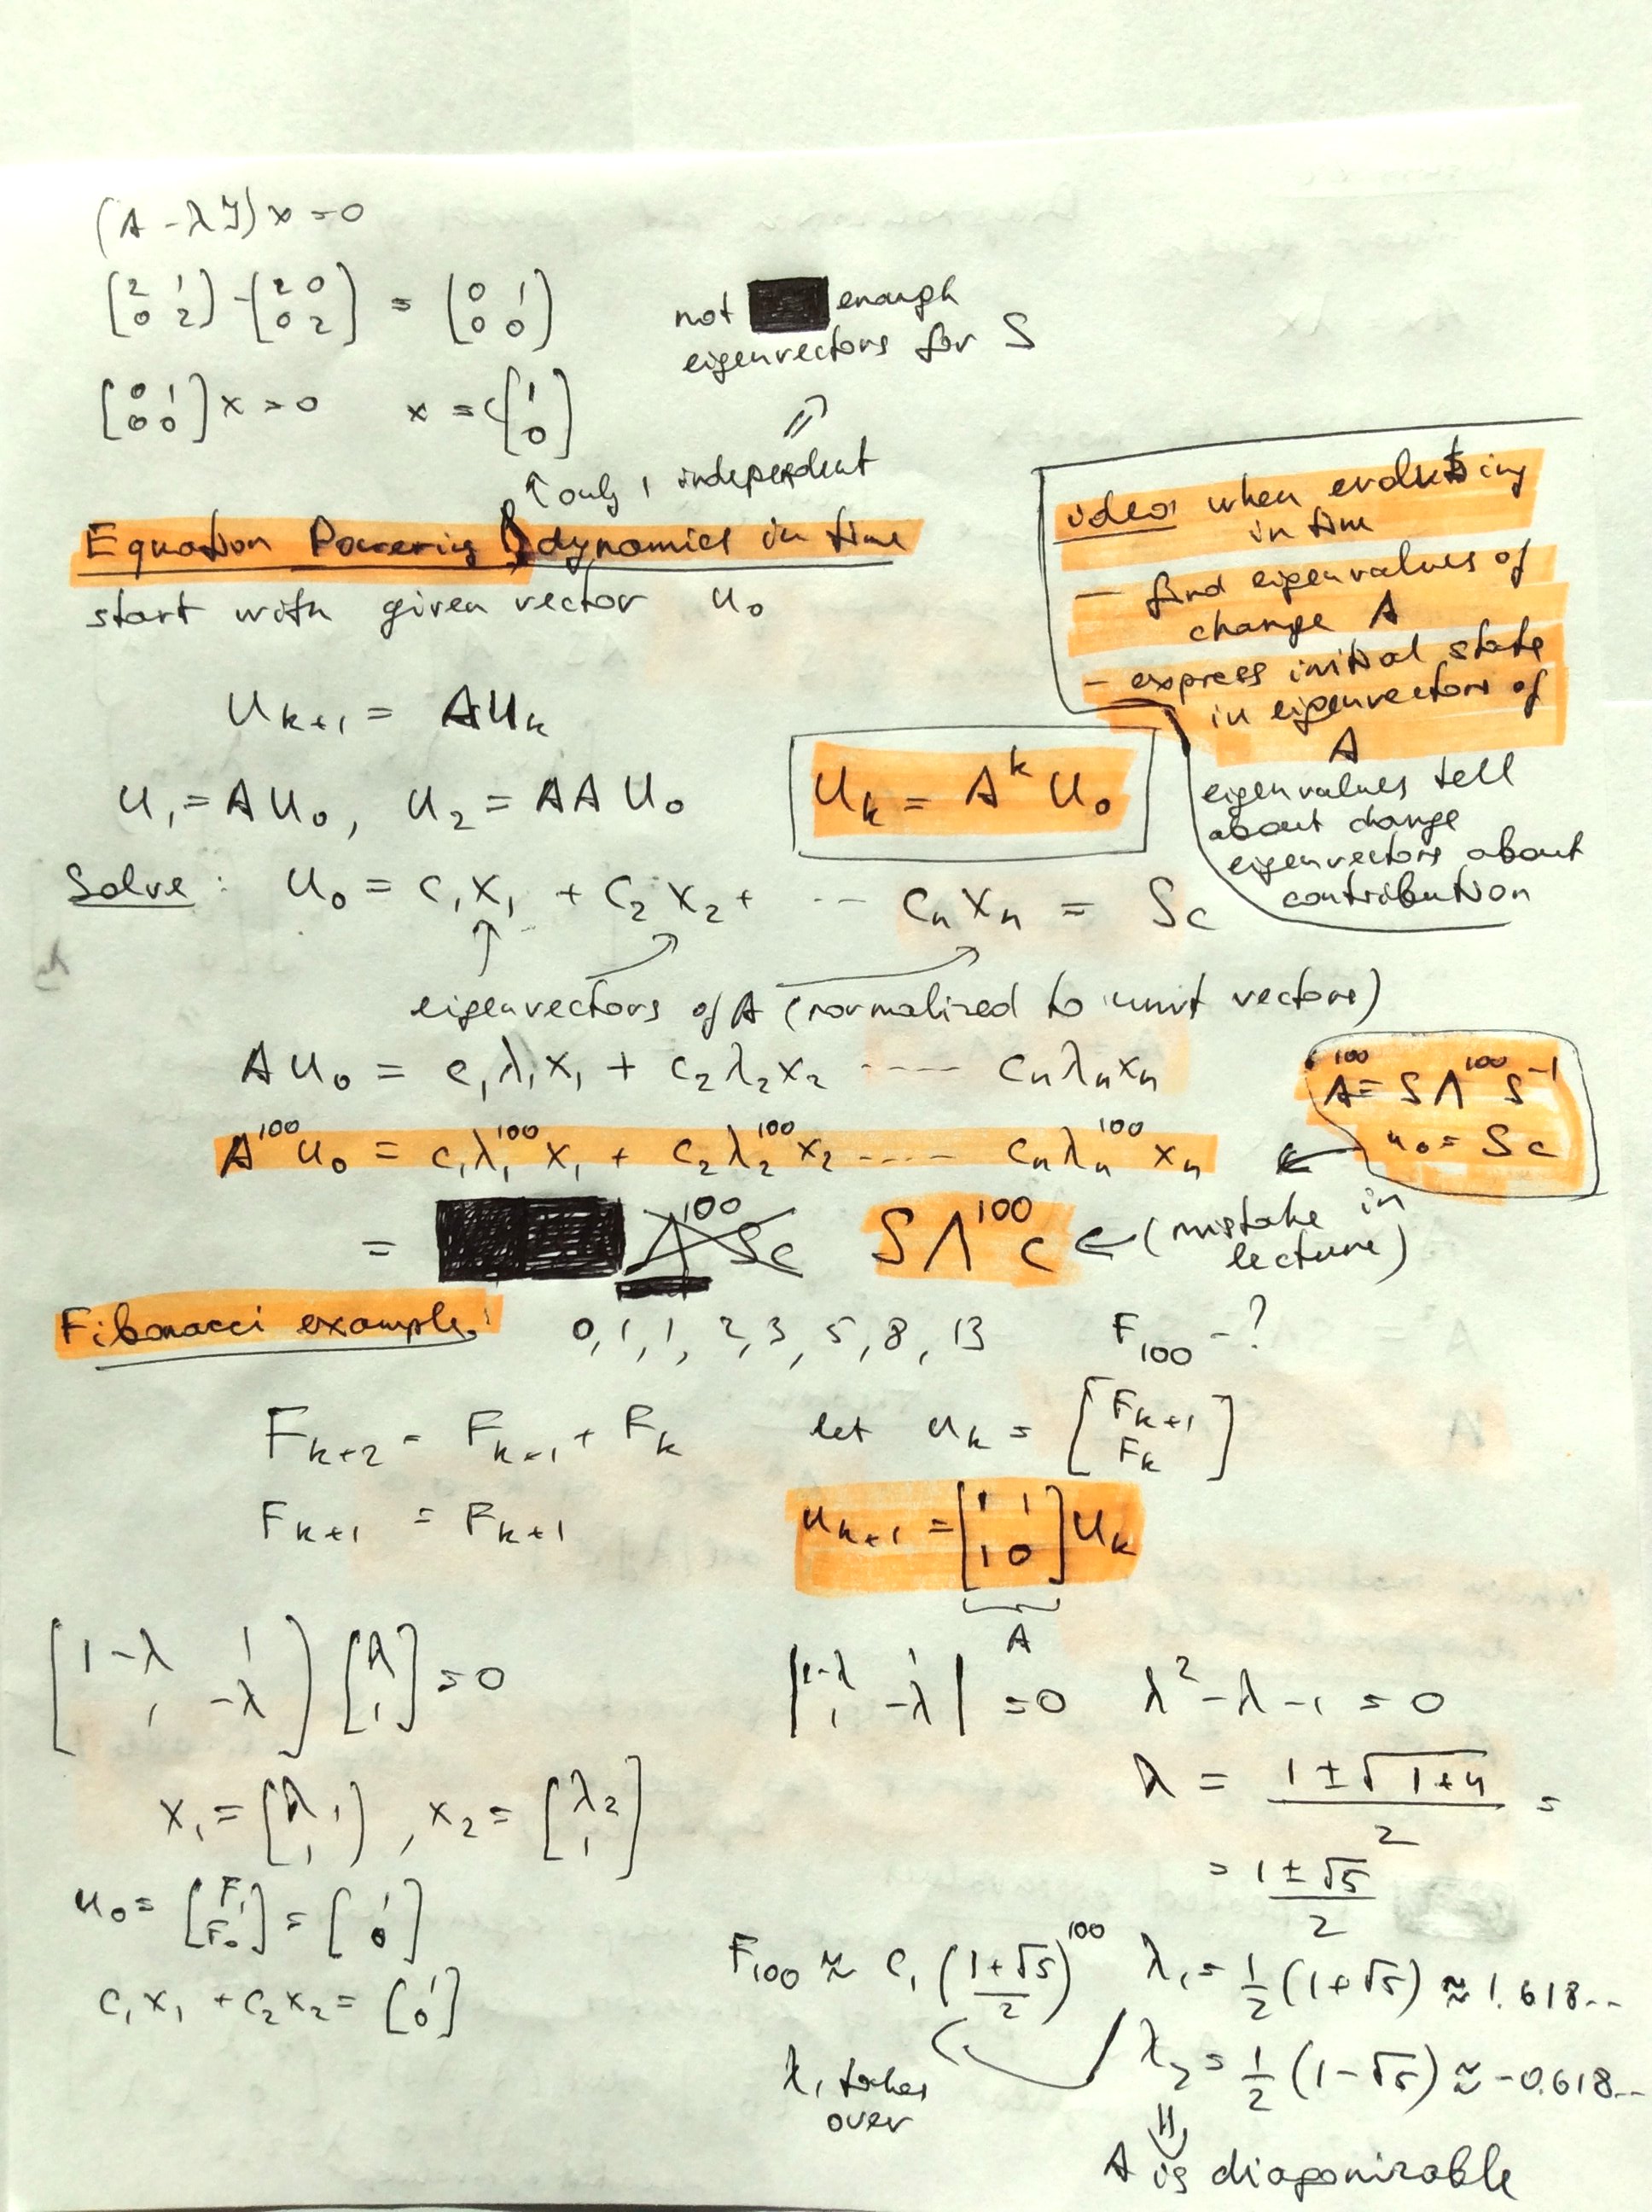 (A - λI)x = 0
[2 1; 0 2] - [2 0; 0 2] = [0 1; 0 0]
not enough
eigenvectors for S
[0 1; 0 0] x = 0   x = c[1; 0]
⇗
↑ only 1 independent
Equation Powering dynamics in time
start with given vector u₀
idea: when evoluting
in time
— find eigenvalues of
change A
— express initial state
in eigenvectors of
A
eigenvalues tell
about change
eigenvectors about
contribution
u_{k+1} = A u_k
u₁ = A u₀, u₂ = A A u₀
u_k = A^k u₀
Solve: u₀ = c₁x₁ + c₂x₂ + ... c_n x_n = Sc
eigenvectors of A (normalized to unit vectors)
A u₀ = c₁λ₁x₁ + c₂λ₂x₂ ..... c_nλ_nx_n
A^100 u₀ = c₁λ₁^100 x₁ + c₂λ₂^100 x₂ ..... c_nλ_n^100 x_n
A^100 = S Λ^100 S^-1
u₀ = Sc
= Λ^100 Sc   S Λ^100 c ← (mistake in
lecture)
Fibonacci example:   0, 1, 1, 2, 3, 5, 8, 13   F₁₀₀ - ?
F_{k+2} = F_{k+1} + F_k   let u_k = [F_{k+1}; F_k]
F_{k+1} = F_{k+1}   u_{k+1} = [1 1; 1 0] u_k
A
[1-λ 1; 1 -λ] [λ; 1] = 0   |1-λ 1; 1 -λ| = 0   λ² - λ - 1 = 0
λ = (1 ± √(1+4))/2 =
x₁ = [λ₁; 1], x₂ = [λ₂; 1]
= (1 ± √5)/2
u₀ = [F₁; F₀] = [1; 0]
F₁₀₀ ≈ c₁ ((1+√5)/2)^100   λ₁ = 1/2 (1+√5) ≈ 1.618..
c₁x₁ + c₂x₂ = [1; 0]
λ₁ takes
over
λ₂ = 1/2 (1-√5) ≈ -0.618..
⇓
A is diagonizable